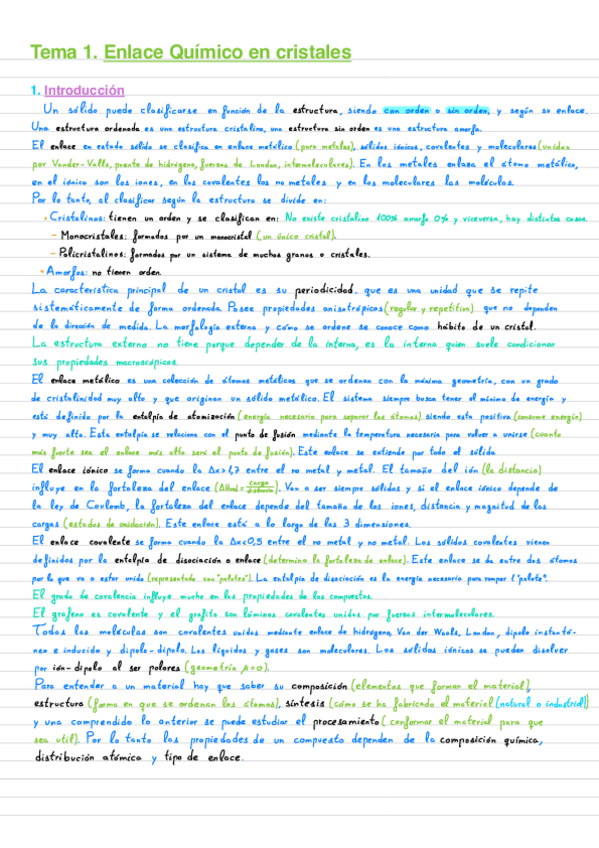 Tema 1. Enlace Químico en cristales
1. Introducción
Un sólido puede clasificarse en función de la estructura, siendo con orden o sin orden, y según su enlace.
Una estructura ordenada es una estructura cristalina, una estructura sin orden es una estructura amorfa.
El enlace en estado sólido se clasifica en enlace metálico (para metales), sólidos iónicos, covalentes y moleculares (unidos
por Vander-Valls, puente de hidrógeno, fuerzas de London, intermoleculares). En los metales enlaza el átomo metálico,
en el iónico son los iones, en los covalentes los no metales y en los moleculares las moléculas.
Por lo tanto, al clasificar según la estructura se divide en:
• Cristalinos: tienen un orden y se clasifican en: No existe cristalino 100% amorfo 0% y viceversa, hay distintos casos.
- Monocristales: formados por un monocristal (un único cristal).
- Policristalinos: formados por un sistema de muchos granos o cristales.
• Amorfos: no tienen orden.
La característica principal de un cristal es su periodicidad, que es una unidad que se repite
sistemáticamente de forma ordenada. Posee propiedades anisotrópicas (regular y repetitivo) que no dependen
de la dirección de medida. La morfología externa y cómo se ordene se conoce como hábito de un cristal.
La estructura externo no tiene porque depender de la interna, es la interna quien suele condicionar
sus propiedades macroscópicas.
El enlace metálico es una colección de átomos metálicos que se ordenan con la máxima geometría, con un grado
de cristalinidad muy alto y que originan un sólido metálico. El sistema siempre busca tener el mínimo de energía y
está definido por la entalpía de atomización (energía necesaria para separar los átomos) siendo esta positiva (consume energía)
y muy alta. Esta entalpía se relaciona con el punto de fusión mediante la temperatura necesaria para volver a unirse (cuanto
más fuerte sea el enlace más alto será el punto de fusión). Este enlace se extiende por todo el sólido.
El enlace iónico se forma cuando la Δx>1,7 entre el no metal y metal. El tamaño del ión (la distancia)
influye en la fortaleza del enlace (ΔHred = carga/distancia). Van a ser siempre sólidos y si el enlace iónico depende de
la ley de Coulomb, la fortaleza del enlace depende del tamaño de los iones, distancia y magnitud de las
cargas (estados de oxidación). Este enlace está a lo largo de las 3 dimensiones.
El enlace covalente se forma cuando la Δx<0,5 entre el no metal y no metal. Los sólidos covalentes vienen
definidos por la entalpía de disociación o enlace (determina la fortaleza de enlace). Este enlace se da entre dos átomos
por lo que va a estar unida (representada con "palotes"). La entalpía de disociación es la energía necesaria para romper 1 "palote".
El grado de covalencia influye mucho en las propiedades de los compuestos.
El grafeno es covalente y el grafito son láminas covalentes unidas por fuerzas intermoleculares.
Todas las moléculas son covalentes unidas mediante enlace de hidrógeno, Van der Waals, London, dipolo instantá-
neo e inducido y dipolo-dipolo. Los líquidos y gases son moleculares. Los sólidos iónicos se pueden disolver
por ión-dipolo al ser polares (geometría μ=0).
Para entender a un material hay que saber su composición (elementos que forman el material),
estructura (forma en que se ordenan los átomos), síntesis (cómo se ha fabricado el material (natural o industrial))
y una comprendido lo anterior se puede estudiar el procesamiento (conformar el material para que
sea útil). Por lo tanto las propiedades de un compuesto dependen de la composición química,
distribución atómica y tipo de enlace.